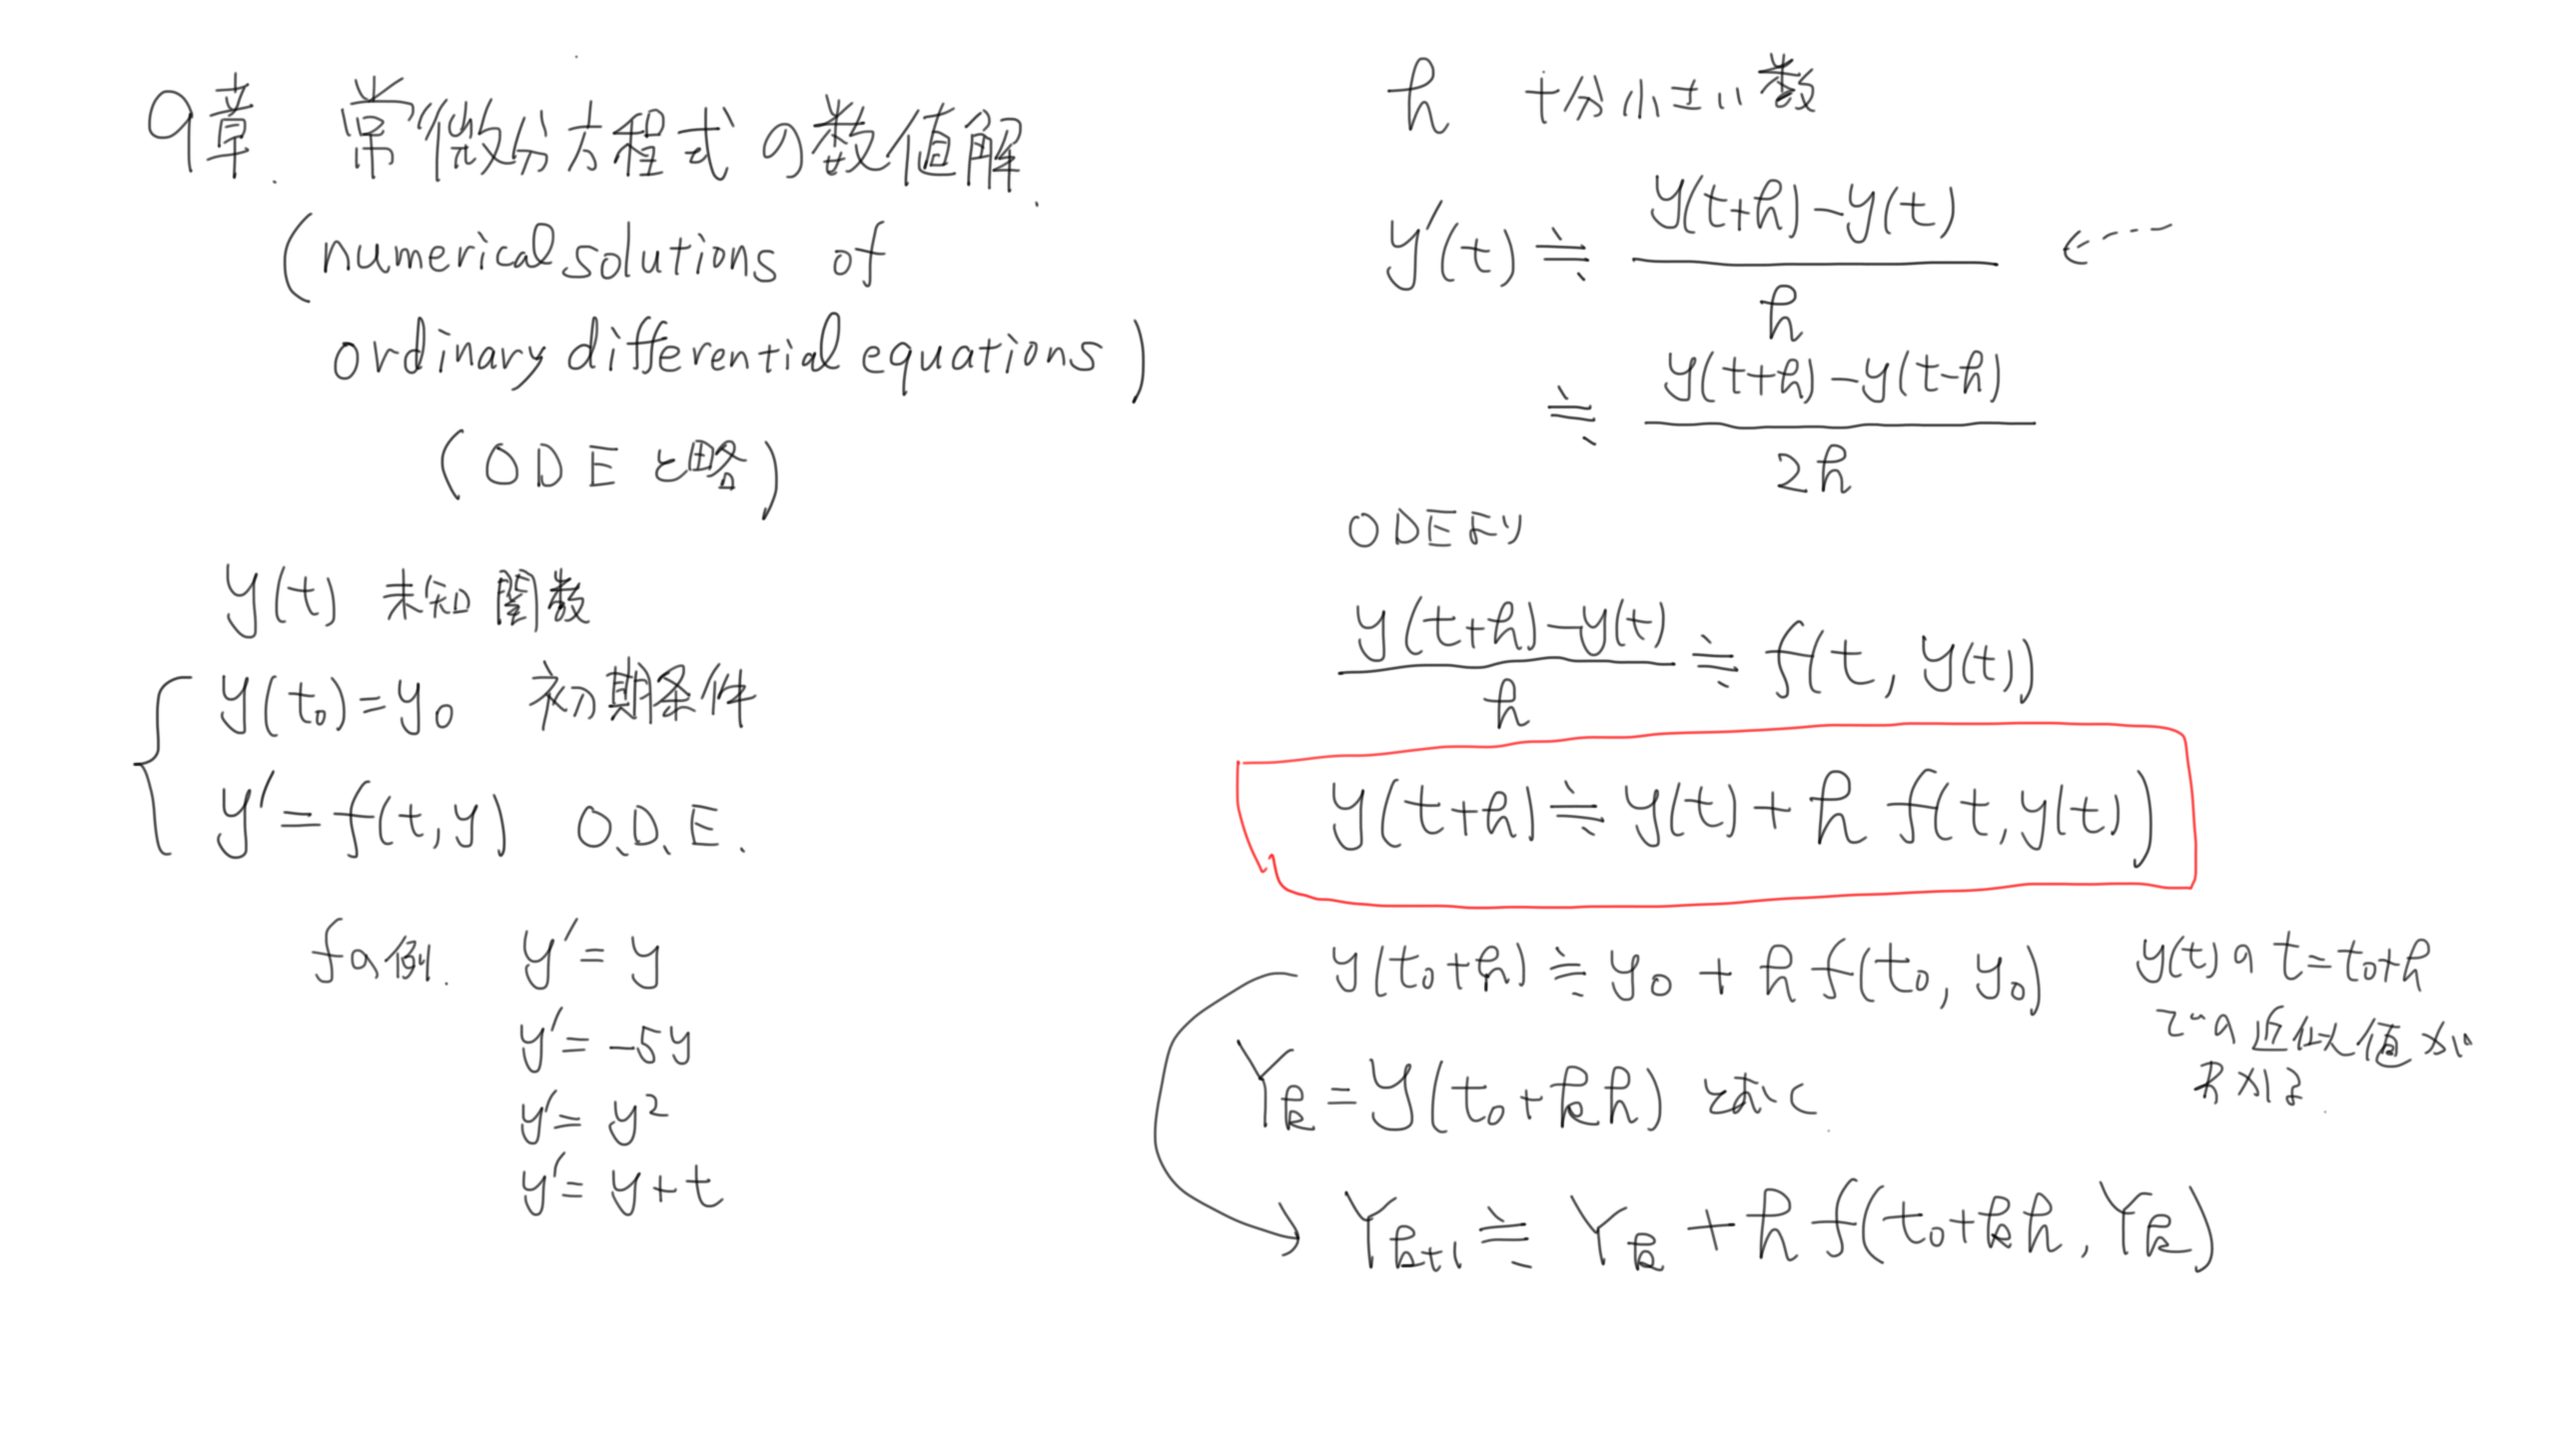 9章. 常微分方程式の数値解.
(numerical solutions of
ordinary differential equations)
(ODEと略)
y(t) 未知関数
y(t₀)=y₀ 初期条件
y′=f(t,y) O.D.E.
fの例. y′=y
y′=-5y
y′=y²
y′=y+t
h 十分小さい数
y′(t)≒(y(t+h)-y(t))/h
≒(y(t+h)-y(t-h))/2h
ODEより
(y(t+h)-y(t))/h≒f(t,y(t))
y(t+h)≒y(t)+h f(t,y(t))
y(t₀+h)≒y₀+h f(t₀,y₀)
y(t)のt=t₀+h
での近似値が
求まる.
Yₖ=y(t₀+kh)とおく.
Yₖ₊₁≒Yₖ+h f(t₀+kh,Yₖ)